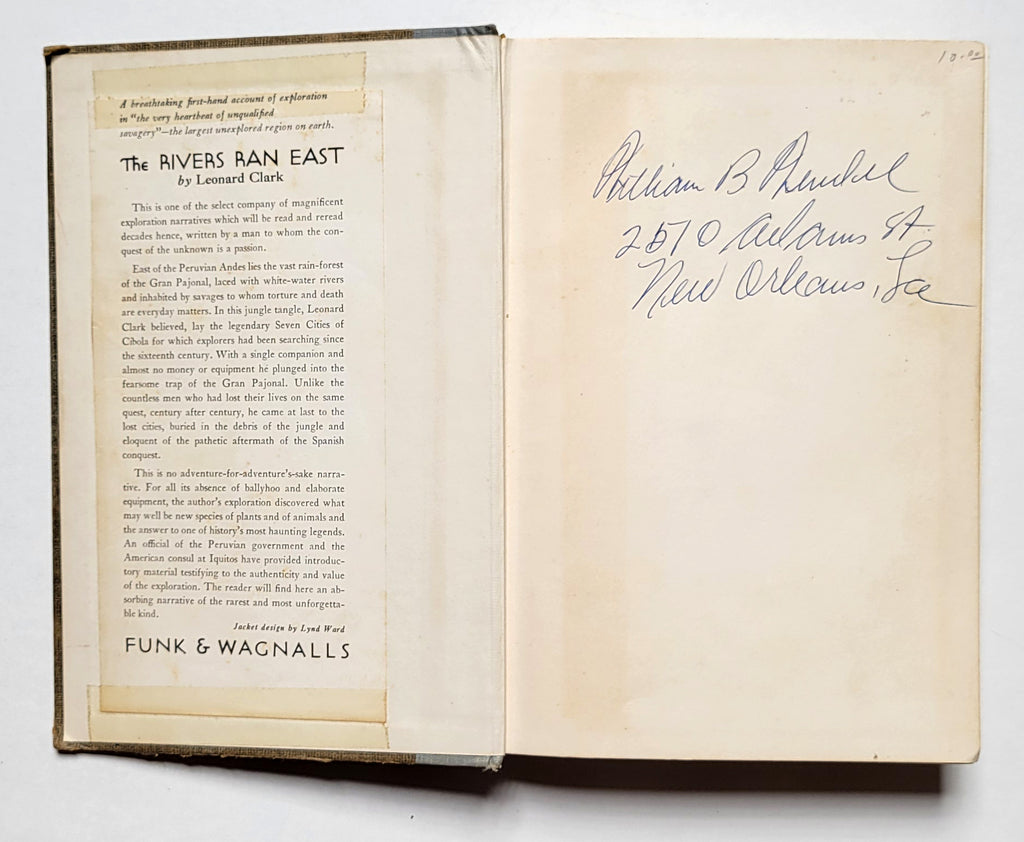 A breathtaking first-hand account of exploration
in "the very heartbeat of unqualified
savagery"—the largest unexplored region on earth.
The RIVERS RAN EAST
by Leonard Clark
This is one of the select company of magnificent
exploration narratives which will be read and reread
decades hence, written by a man to whom the con-
quest of the unknown is a passion.
East of the Peruvian Andes lies the vast rain-forest
of the Gran Pajonal, laced with white-water rivers
and inhabited by savages to whom torture and death
are everyday matters. In this jungle tangle, Leonard
Clark believed, lay the legendary Seven Cities of
Cibola for which explorers had been searching since
the sixteenth century. With a single companion and
almost no money or equipment he plunged into the
fearsome trap of the Gran Pajonal. Unlike the
countless men who had lost their lives on the same
quest, century after century, he came at last to the
lost cities, buried in the debris of the jungle and
eloquent of the pathetic aftermath of the Spanish
conquest.
This is no adventure-for-adventure's-sake narra-
tive. For all its absence of ballyhoo and elaborate
equipment, the author's exploration discovered what
may well be new species of plants and of animals and
the answer to one of history's most haunting legends.
An official of the Peruvian government and the
American consul at Iquitos have provided introduc-
tory material testifying to the authenticity and value
of the exploration. The reader will find here an ab-
sorbing narrative of the rarest and most unforgetta-
ble kind.
Jacket design by Lynd Ward
FUNK & WAGNALLS
10.00
William B
2510 Adams St
New Orleans, La